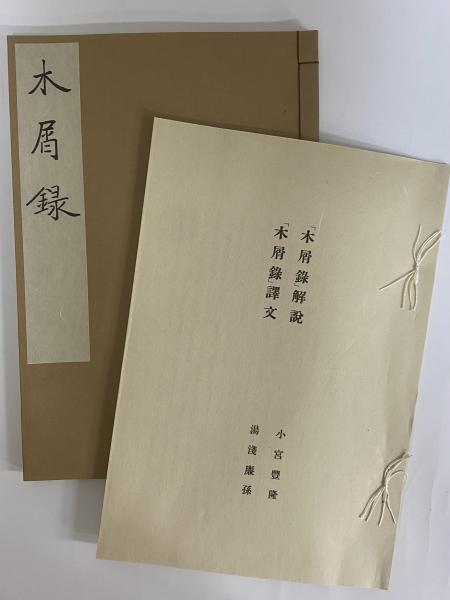 木屑録
「木屑錄」解說
「木屑錄」譯文
小宮豐隆
湯淺廉孫